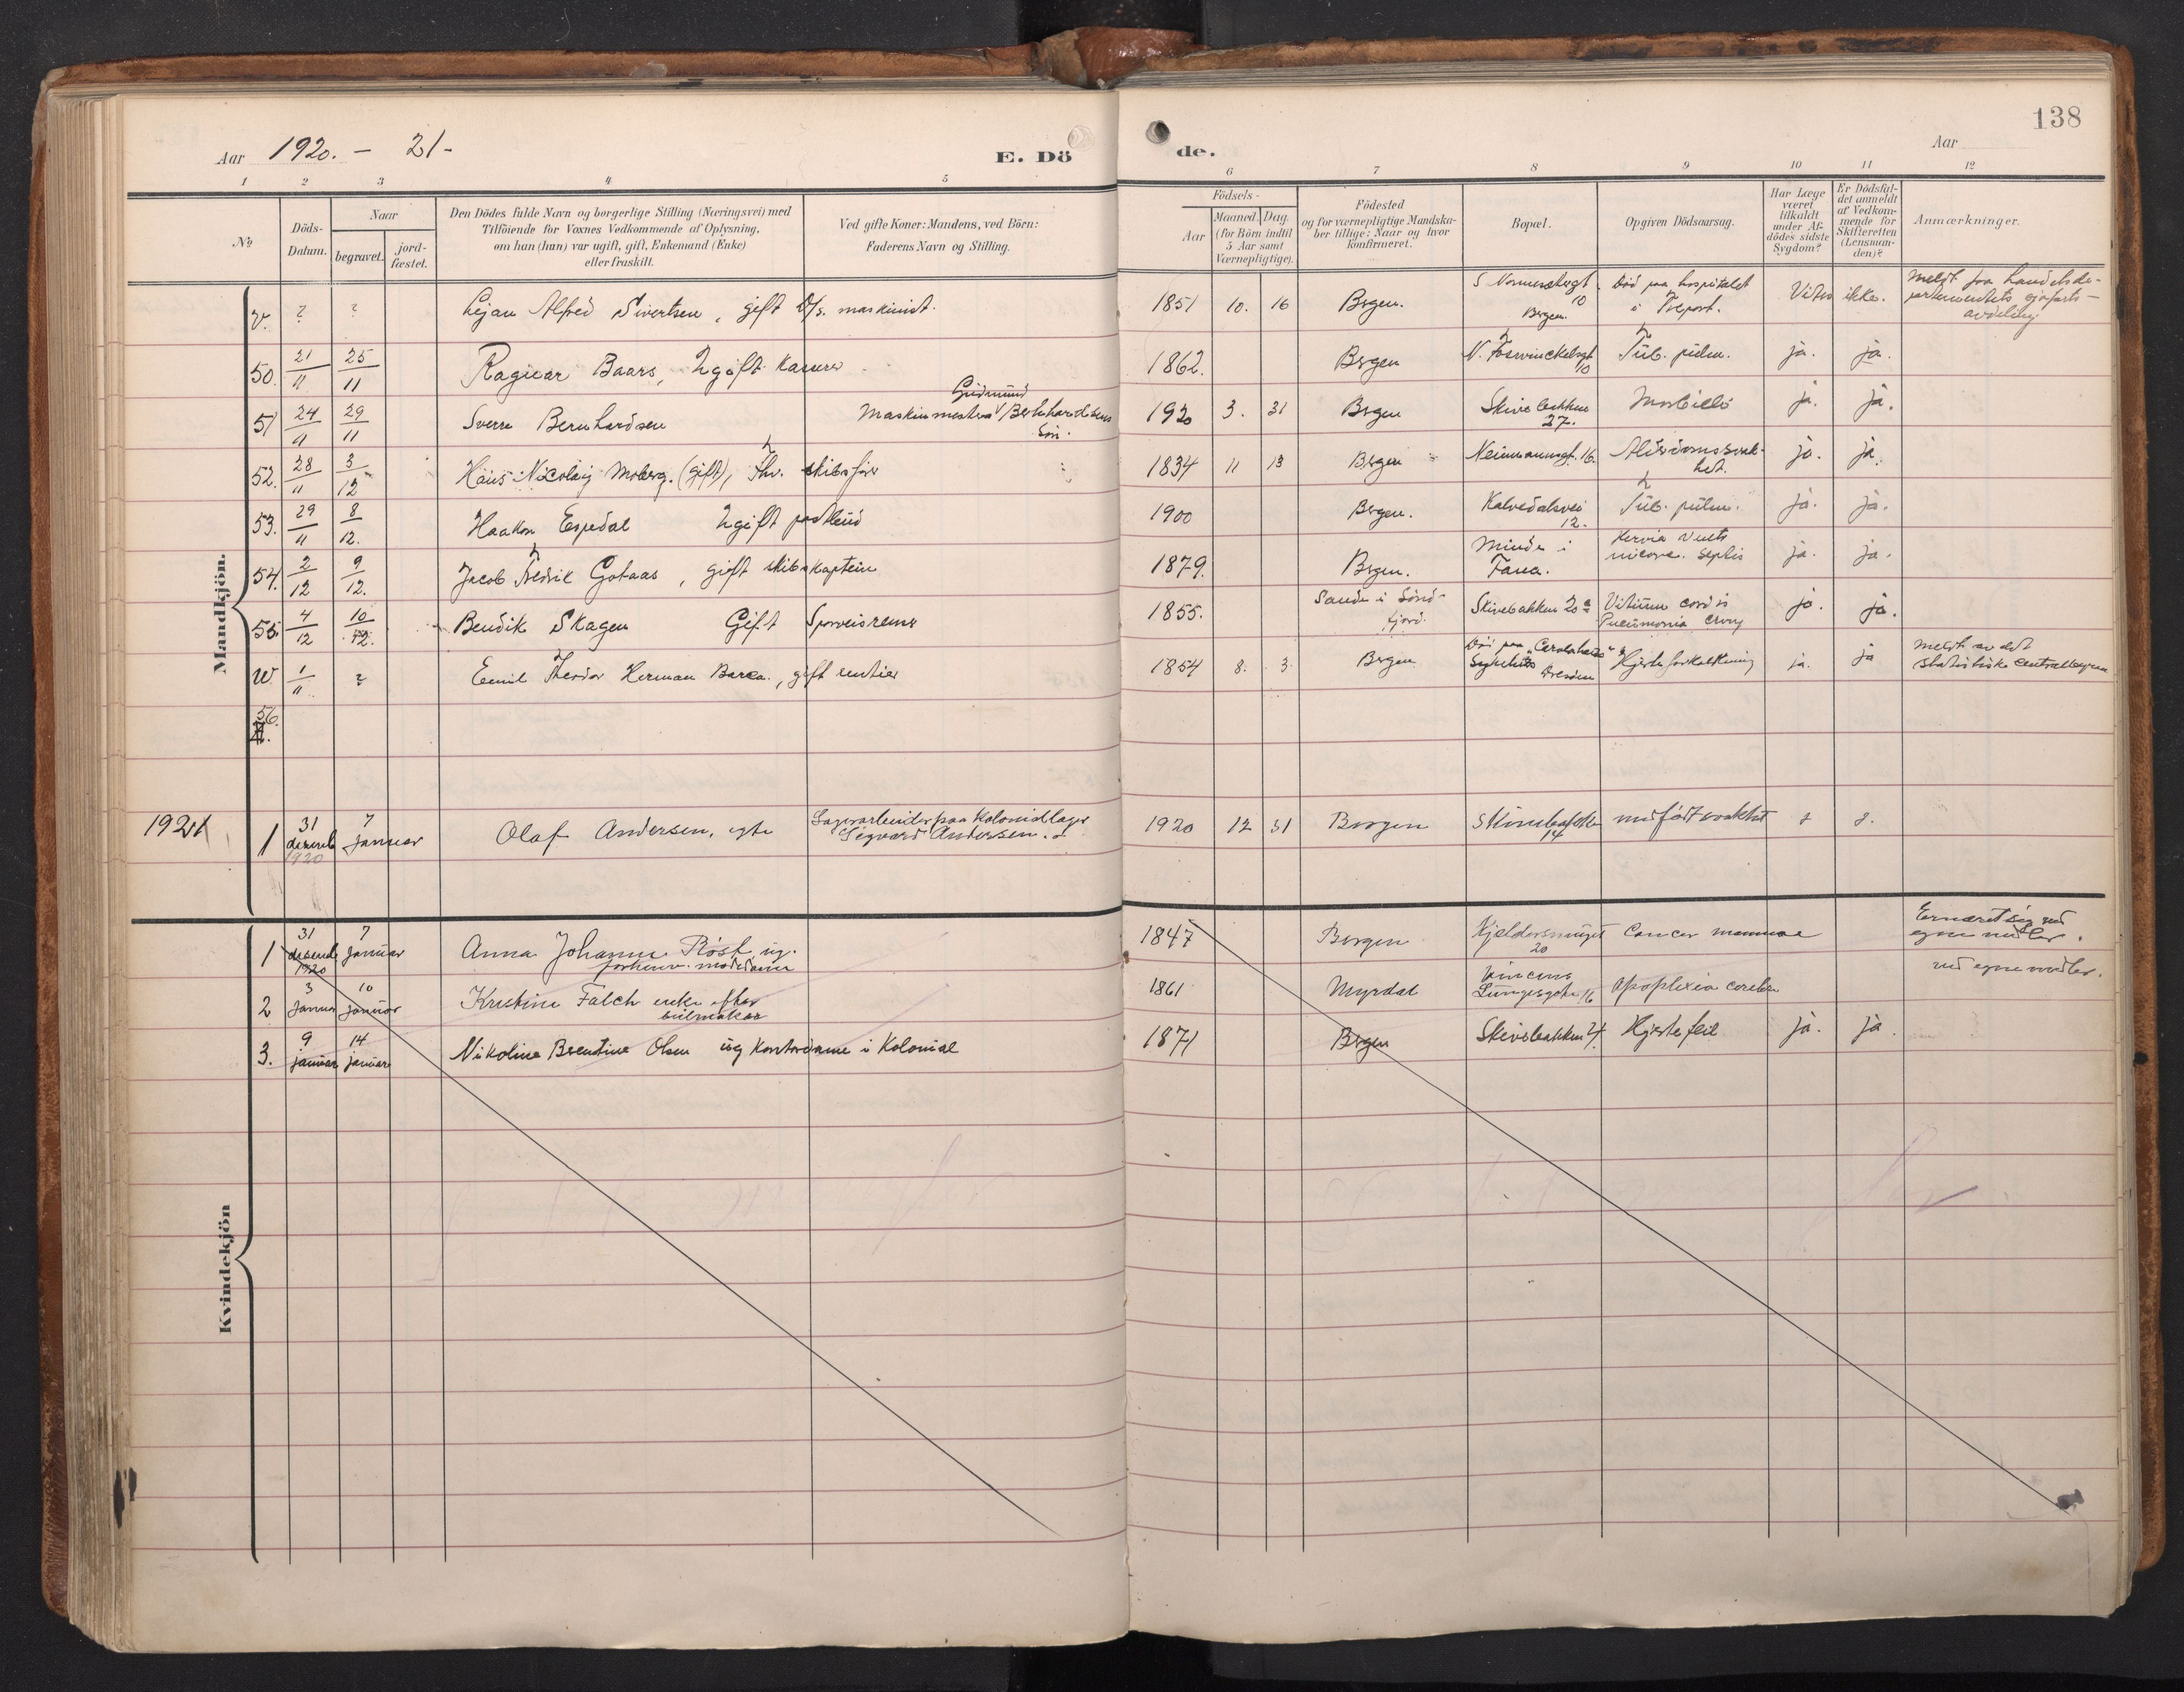 138
Aar 1920. - 21-
E. Dö
de.
Aar
1 2 3 4 5 6 7 8 9 10 11 12
No
Döds-Datum.
Naar
begravet.
jord-fæstet.
Den Dödes fulde Navn og borgerlige Stilling (Næringsvei) med
Tilföiende for Voxnes Vedkommende af Oplysning,
om han (hun) var ugift, gift, Enkemand (Enke)
eller fraskilt.
Ved gifte Koner: Mandens, ved Börn:
Faderens Navn og Stilling.
Födsels-
Aar
Maaned. Dag.
(for Börn indtil
5 Aar samt
Værnepligtige).
Födested
og for værnepligtige Mandska-
ber tillige: Naar og hvor
konfirmeret.
Bopæl.
Opgiven Dödsaarsag.
Har Læge
været
tilkaldt
under Af-
dödes sidste
Sygdom?
Er Dödsfal-
det anmeldt
af Vedkom-
mende for
Skifteretten
(Lensman-
den)?
Anmærkninger.
Mandkjön.
v. ? ? Alfred Sivertsen, gift D/s. maskinist. 1851 10. 16 Bergen. 10 Bergen. Død paa hospitalet i Treport. Vides ikke. Meldt fra handelsde-
partementets sjøfarts-
avdeling
50. 21/11 25/11 Ragnar Baars, Ugift Kasserer 1862. Bergen 10 Tub. pulm. ja. ja.
51 24/11 29/11 Sverre Bernhardsen Maskinmester Gudmund Bernhardsens Søn. 1920 3. 31 Bergen Skivebakken 27. Morbilli ja. ja.
52. 28/11 3/12 Hans Nicolay Moberg. (gift), Fhv. skibsfører 1834 11 13 Bergen Neumannsgt. 16. Alderdomssvak-
het. ja. ja.
53. 29/11 8/12. Haakon Espedal Ugift postbud 1900 Bergen. Kalvedalsvei 12. Tub. pulm. ja. ja.
54. 2/12 9/12. Jacob Fredrik Gotaas, gift skibskaptein 1879. Bergen. Minde i Fana. Sepsis ja. ja.
55. 4/12 10/12. Bendik Skagen Gift Sporveisrenser 1855. Sande i Sønd-
fjord. Skivebakken 20a Vitium cordis
Pneumonia croup ja. ja.
w. 1/11 ? Emil Theodor Herman Barca., gift rentier 1854 8. 3. Bergen Død paa "Carolahaus"
Sykehus Dresden Hjerteforkalkning ja. ja meldt av det
statistiske Centralbyraa
56.
1921
1 31 desemb 1920 7 januar Olaf Andersen, egte Lagerarbeider paa Koloniallager
Sigvard Andersen. 1920 12 31 Bergen Skivebakken 14 medfødt svakhet
Kvindekjön
1 31 desemb 1920 7 januar Anna Johanne Røst ug.
forhenv. modedame 1847 Bergen Kjeldersmuget 20 Cancer mammae Ernæret sig ved
egne midler.
2 3 januar 10 januar Kristine Falch enke efter
buntmaker 1861 Myrdal Vincens
Lungesgate 16 Apoplexia cerebri ved egne midler.
3. 9 januar 14 januar Nikoline Berentine Olsen ug Kontordame i Kolonial 1871 Bergen Skivebakken Hjertefeil ja. ja